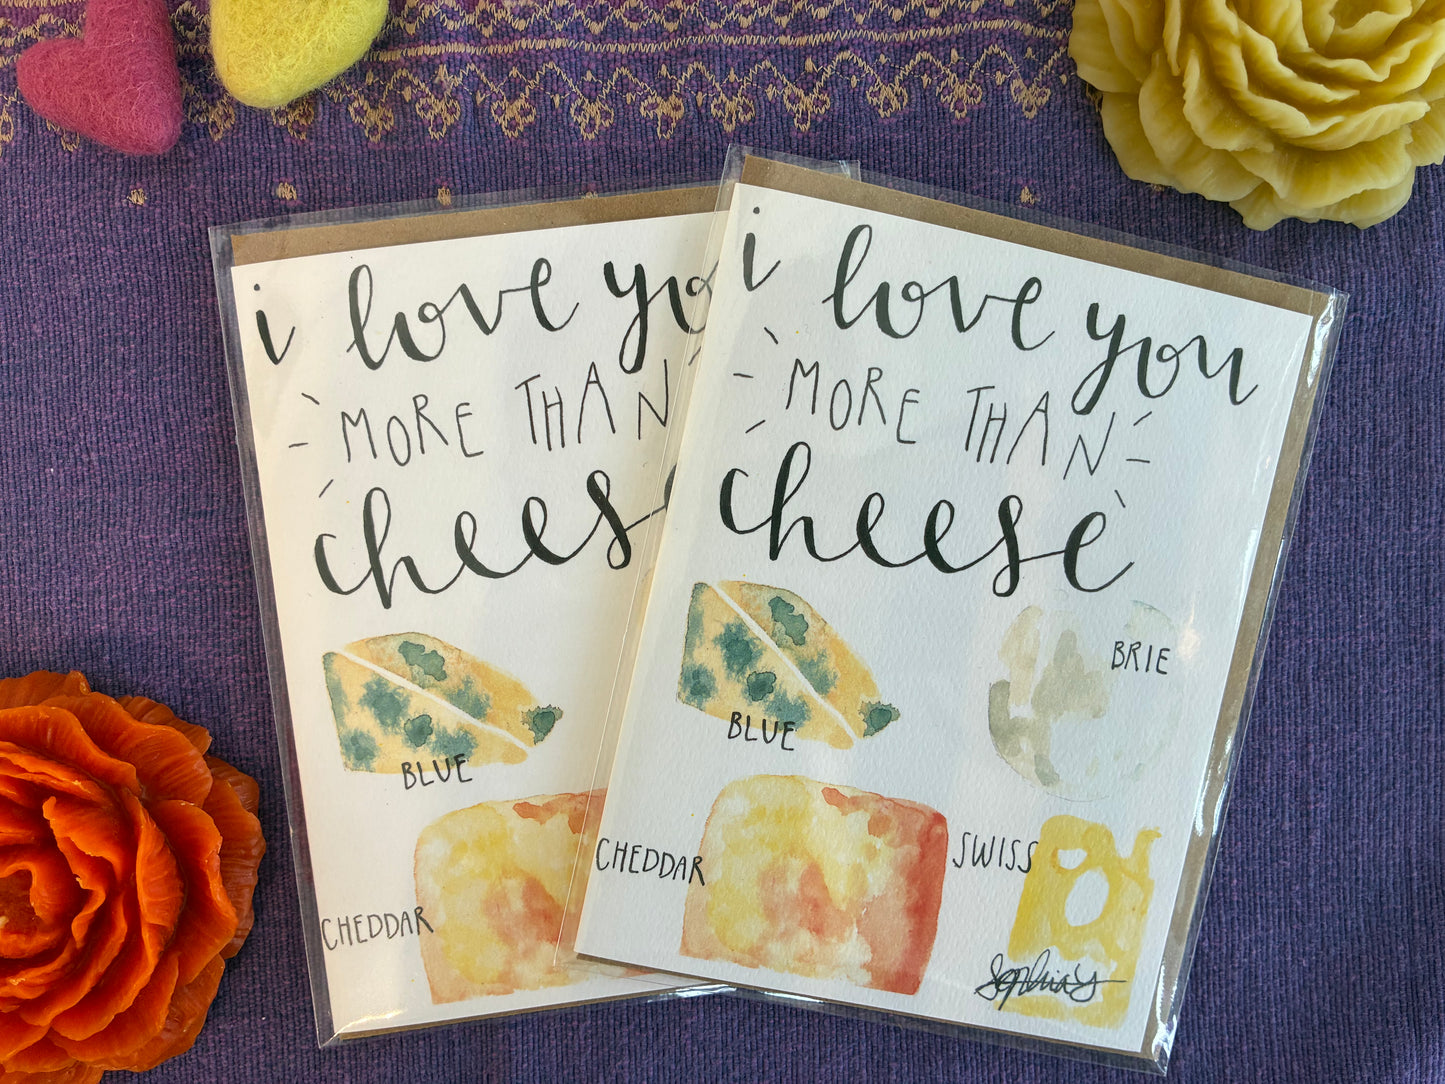 i love you
MORE THAN
cheese
BLUE
CHEDDAR
i love you
MORE THAN
cheese
BLUE
BRIE
CHEDDAR
SWISS